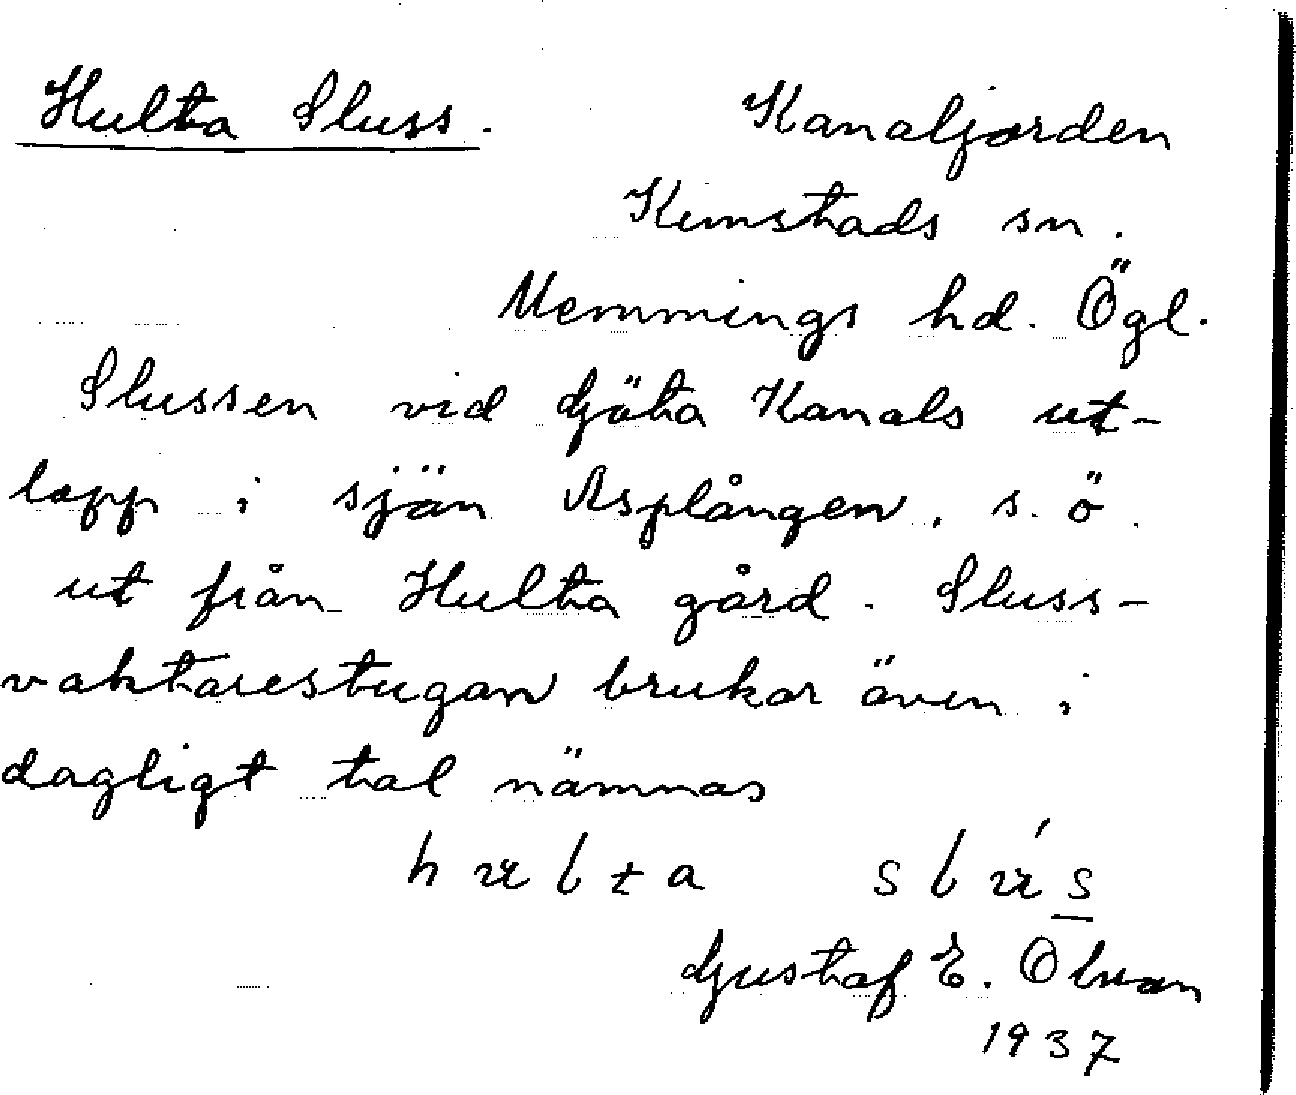 Hulta Sluss. Kanaljorden
Kimstads sn.
Memmings hd. Ögl.
Slussen vid Göta Kanals ut-
lopp i sjön Asplången, s. ö.
ut från Hulta gård. Sluss-
vaktarestugan brukar även i
dagligt tal nämnas
hulta slús
Gustaf E. Olson
1937